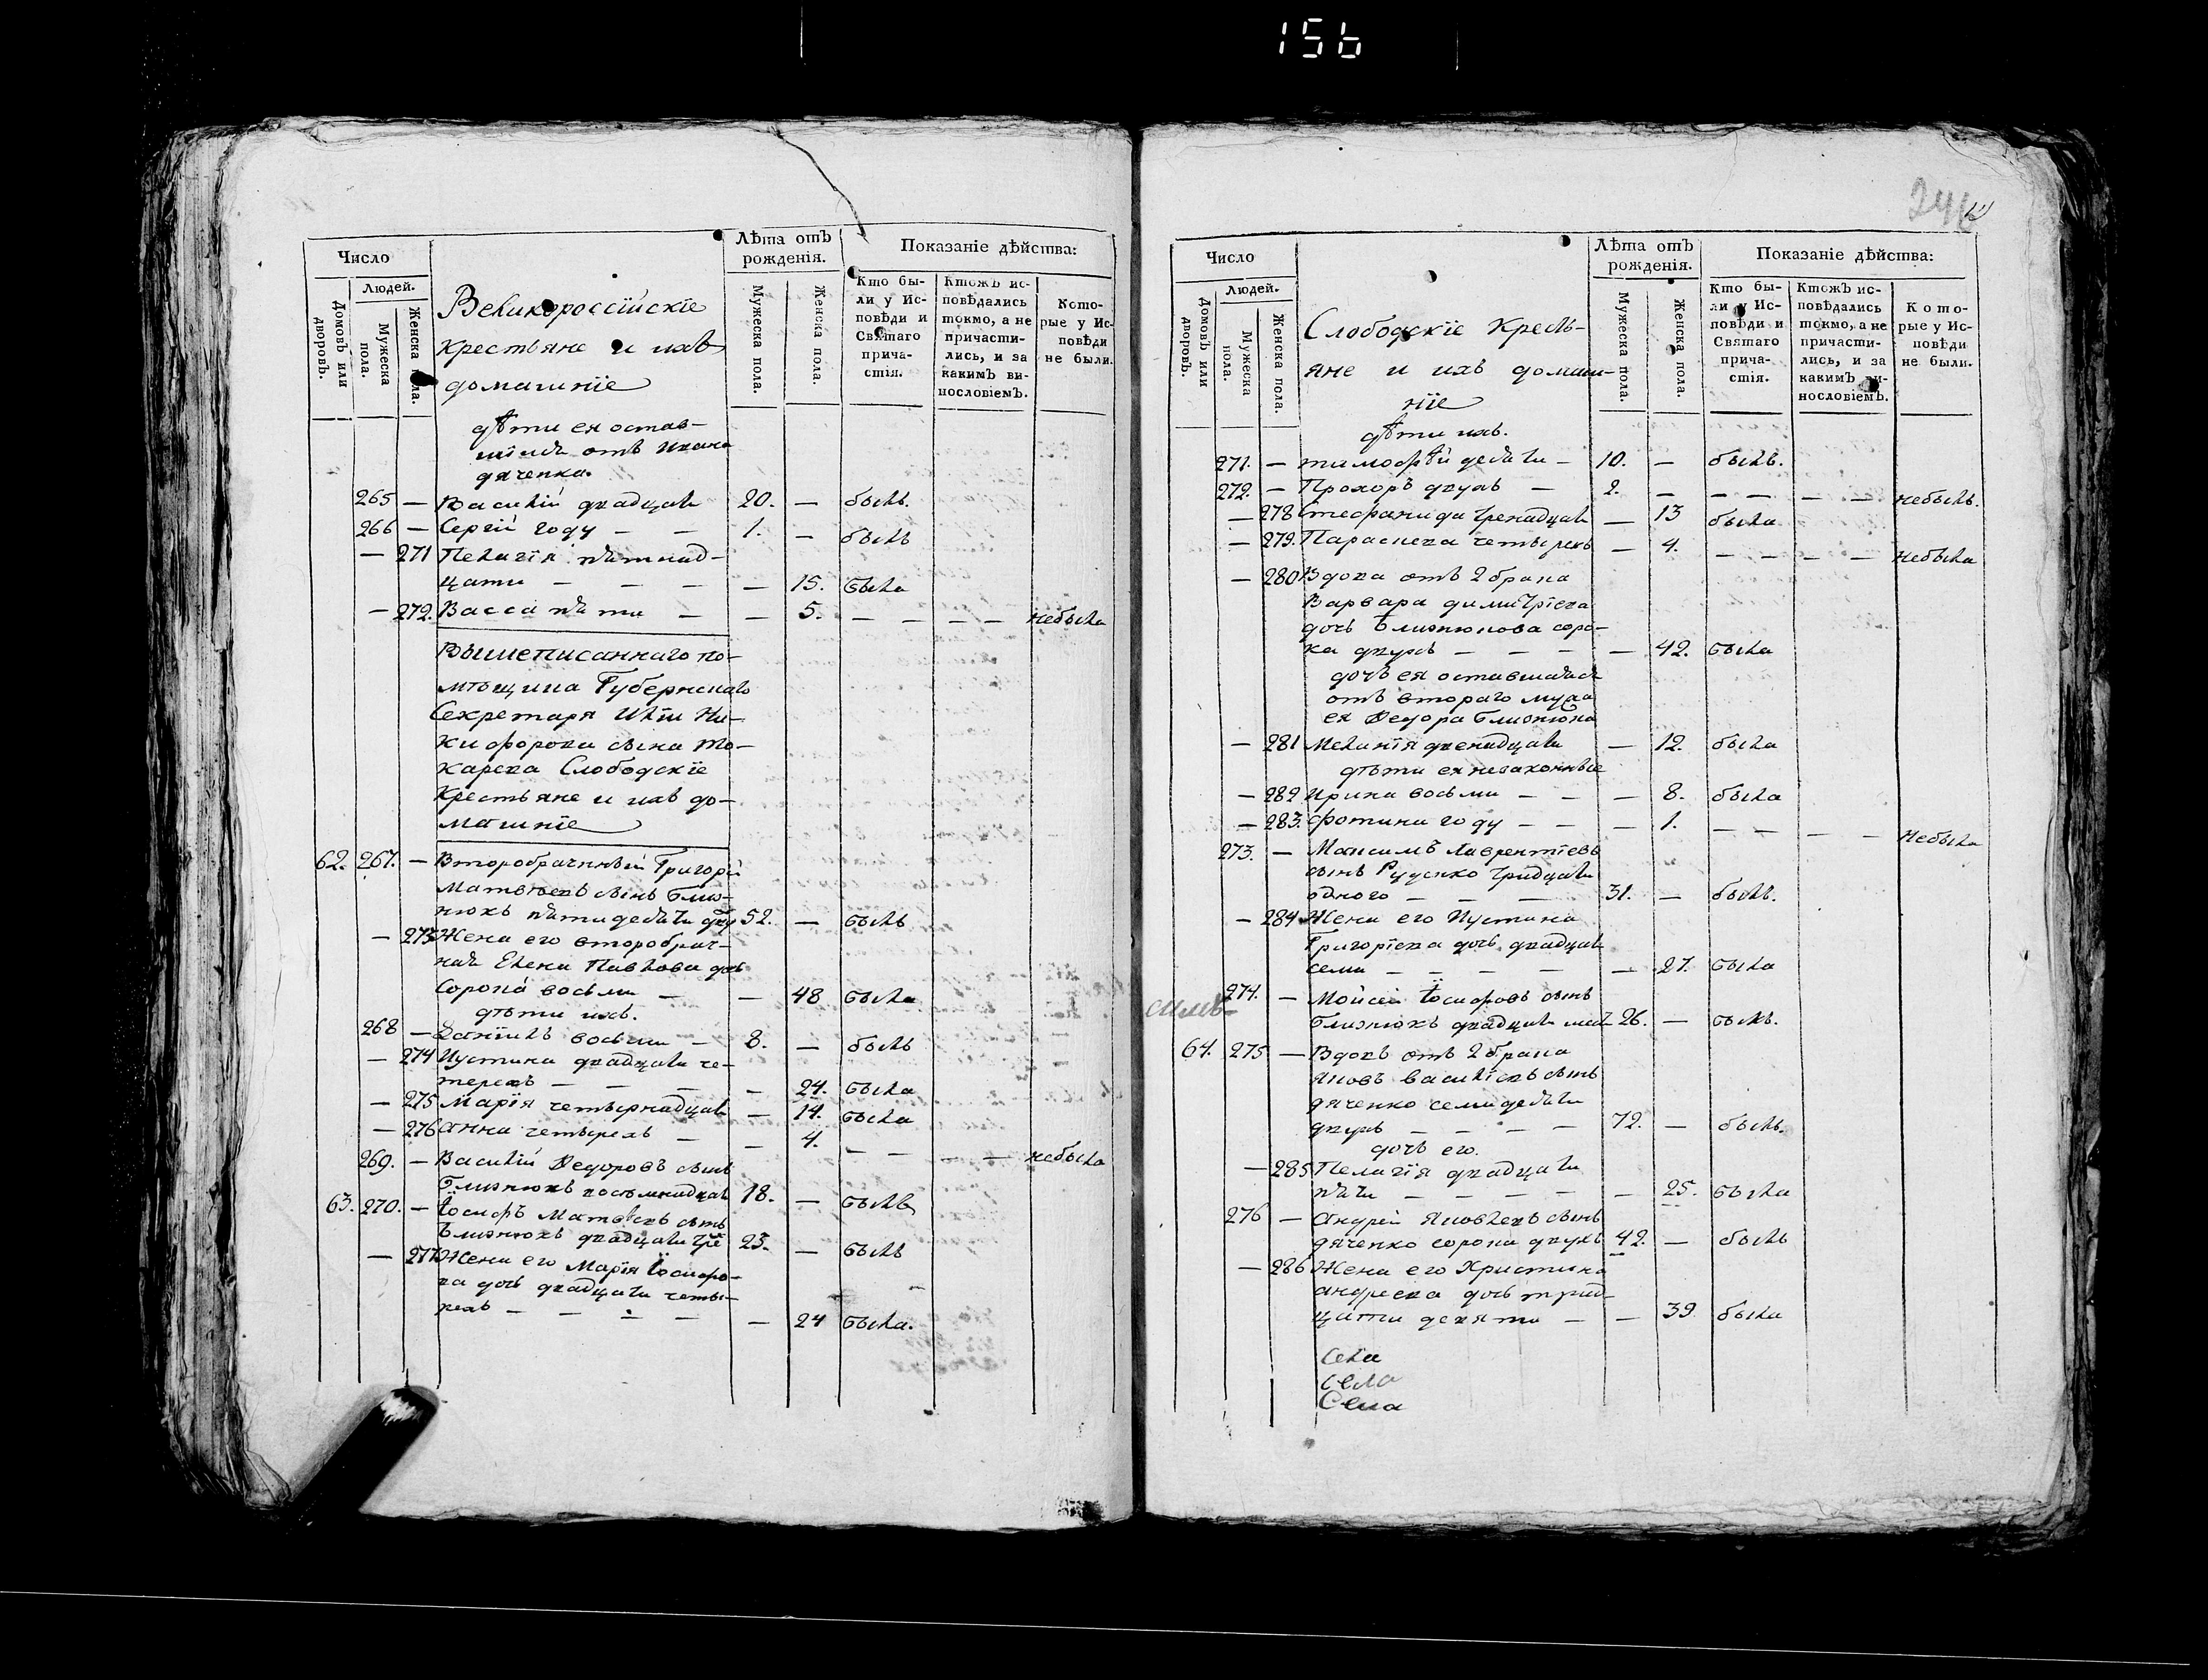 156
Число
Людей.
Домовъ или дворовъ.
Мужеска пола.
Женска пола.
Великороссійскіе
крестьяне и ихъ
домашніе
Лѣта отъ
рожденія.
Мужеска пола.
Женска пола.
Показаніе дѣйства:
Кто бы-
ли у Ис-
повѣди и
Святаго
прича-
стія.
Ктожъ ис-
повѣдались
токмо, а не
причасти-
лись, и за
какимъ ви-
нословіемъ.
Кото-
рые у Ис-
повѣди
не были.
дѣти ея остав-
шіяся отъ Ивана
дяченка.
265 — Василій двадцати 20. — былъ.
266 — Сергій году — — 1. — былъ
— 271 Пелагія пятнад-
цати — — — — 15. была
— 272. Васса пяти — — 5. — — — — небыла
Вышеписаннаго по-
мѣщика Губернскаго
Секретаря Иліи Ни-
кифорова сына То-
карева Слободскіе
Крестьяне и ихъ до-
машніе
62. 267. — Второбрачный Григорій
Матвѣевъ сынъ Близ-
нюкъ пятидесяти дву 52. — былъ
— 273 Жена его второбрач-
ная Елена Павлова дочь
Сорока восьми — — 48 была
дѣти ихъ.
268 — Даніилъ восьми — 8. — былъ
— 274 Иустина двадцати че-
терехъ — — — — 24. была
— 275 Марія четырнадцати — 14. была
— 276 Анна четырехъ — — 4. — — — — небыла
269. — Василій Ѳедоровъ сынъ
Близнюкъ восьмнадцати 18. — былъ
63. 270. — Іосифъ Матвѣевъ сынъ
Близнюкъ двадцати тре 23. — былъ
— 277 Жена его Марія Іосифо-
ва дочь двадцати четы-
рехъ — — — — — 24 была.
246
Число
Людей.
Домовъ или дворовъ.
Мужеска пола.
Женска пола.
Слободскіе Кресть-
яне и ихъ домаш-
ніе
Лѣта отъ
рожденія.
Мужеска пола.
Женска пола.
Показаніе дѣйства:
Кто бы-
ли у Ис-
повѣди и
Святаго
прича-
стія.
Ктожъ ис-
повѣдались
токмо, а не
причасти-
лись, и за
какимъ ви-
нословіемъ.
Кото-
рые у Ис-
повѣди
не были.
дѣти ихъ.
271. — Тимофѣй десяти — 10. — былъ.
272. — Прохоръ двухъ — 2. — — — — — небылъ.
— 278 Стефанида тренадцати — 13 была
— 279. Параскева четырехъ — 4. — — — — небыла
— 280 Вдова отъ 2 брака
Варвара димитріева
дочь Близнюкова соро-
ка двухъ — — — — 42. была
дочь ея оставшаяся
отъ втораго мужа
ея Ѳедора Близнюка
— 281 Меланія двенадцати — 12. была
дѣти ея незаконные
— 282 Ирина восьми — — — 8. была
— 283. Фотина году — — — 1. — — — — Небыла
273. — Максимъ Лаврентіевъ
сынъ Руденко тридцати
одного — — — 31. — былъ.
— 284 Жена его Иустина
Григоріева дочь двадцати
семи — — — — — 27. была
274. — Мойсей Іосифовъ сынъ
Близнюкъ двадцати шест 26. — былъ.
64. 275 — Вдовъ отъ 2 брака
Яковъ Василіевъ сынъ
дяченко семидесяти
двухъ — — — — 72. — былъ.
дочь его.
— 285 Пелагія двадцати
пяти — — — — — 25. была
276 — Андрей Яковлевъ сынъ
дяченко сорока двухъ 42. — былъ
— 286 Жена его Христина
Андреева дочь трид-
цати девяти — — 39. была
Села
Села
Села